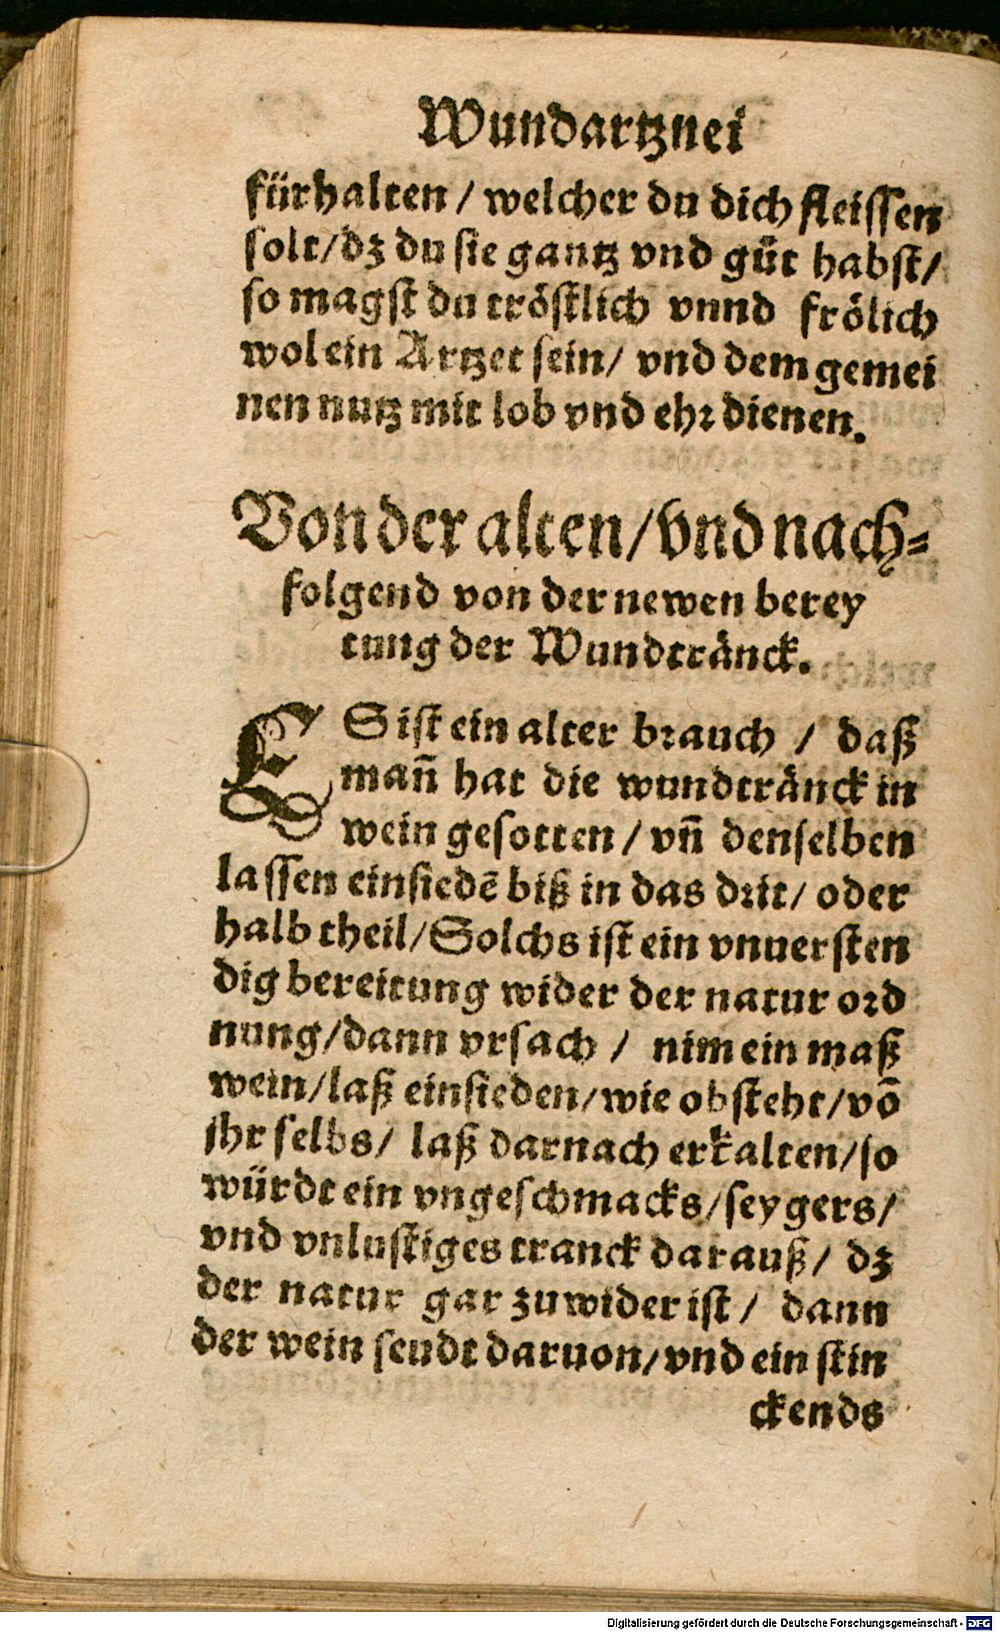 Wundartznei
fürhalten / welcher du dich fleissen
solt/dz du sie gantz vnd gůt habst/
so magst du tröstlich vnnd frölich
wol ein Artzet sein/ vnd dem gemei
nen nutz mit lob vnd ehr dienen.
Von der alten/vnd nach-
folgend von der newen berey
tung der Wundtränck.
ES ist ein alter brauch / daß
mañ hat die wundtränck in
wein gesotten / vñ denselben
lassen einsiedē biß in das drit/ oder
halb theil/Solchs ist ein vnuersten
dig bereitung wider der natur ord
nung/dann vrsach / nim ein maß
wein/laß einsieden/wie obsteht/võ
jhr selbs/ laß darnach erkalten/so
würdt ein vngeschmacks/seygers/
vnd vnlustiges tranck darauß/ dz
der natur gar zuwider ist / dann
der wein seudt daruon/vnd ein stin
ckends
Digitalisierung gefördert durch die Deutsche Forschungsgemeinschaft - DFG